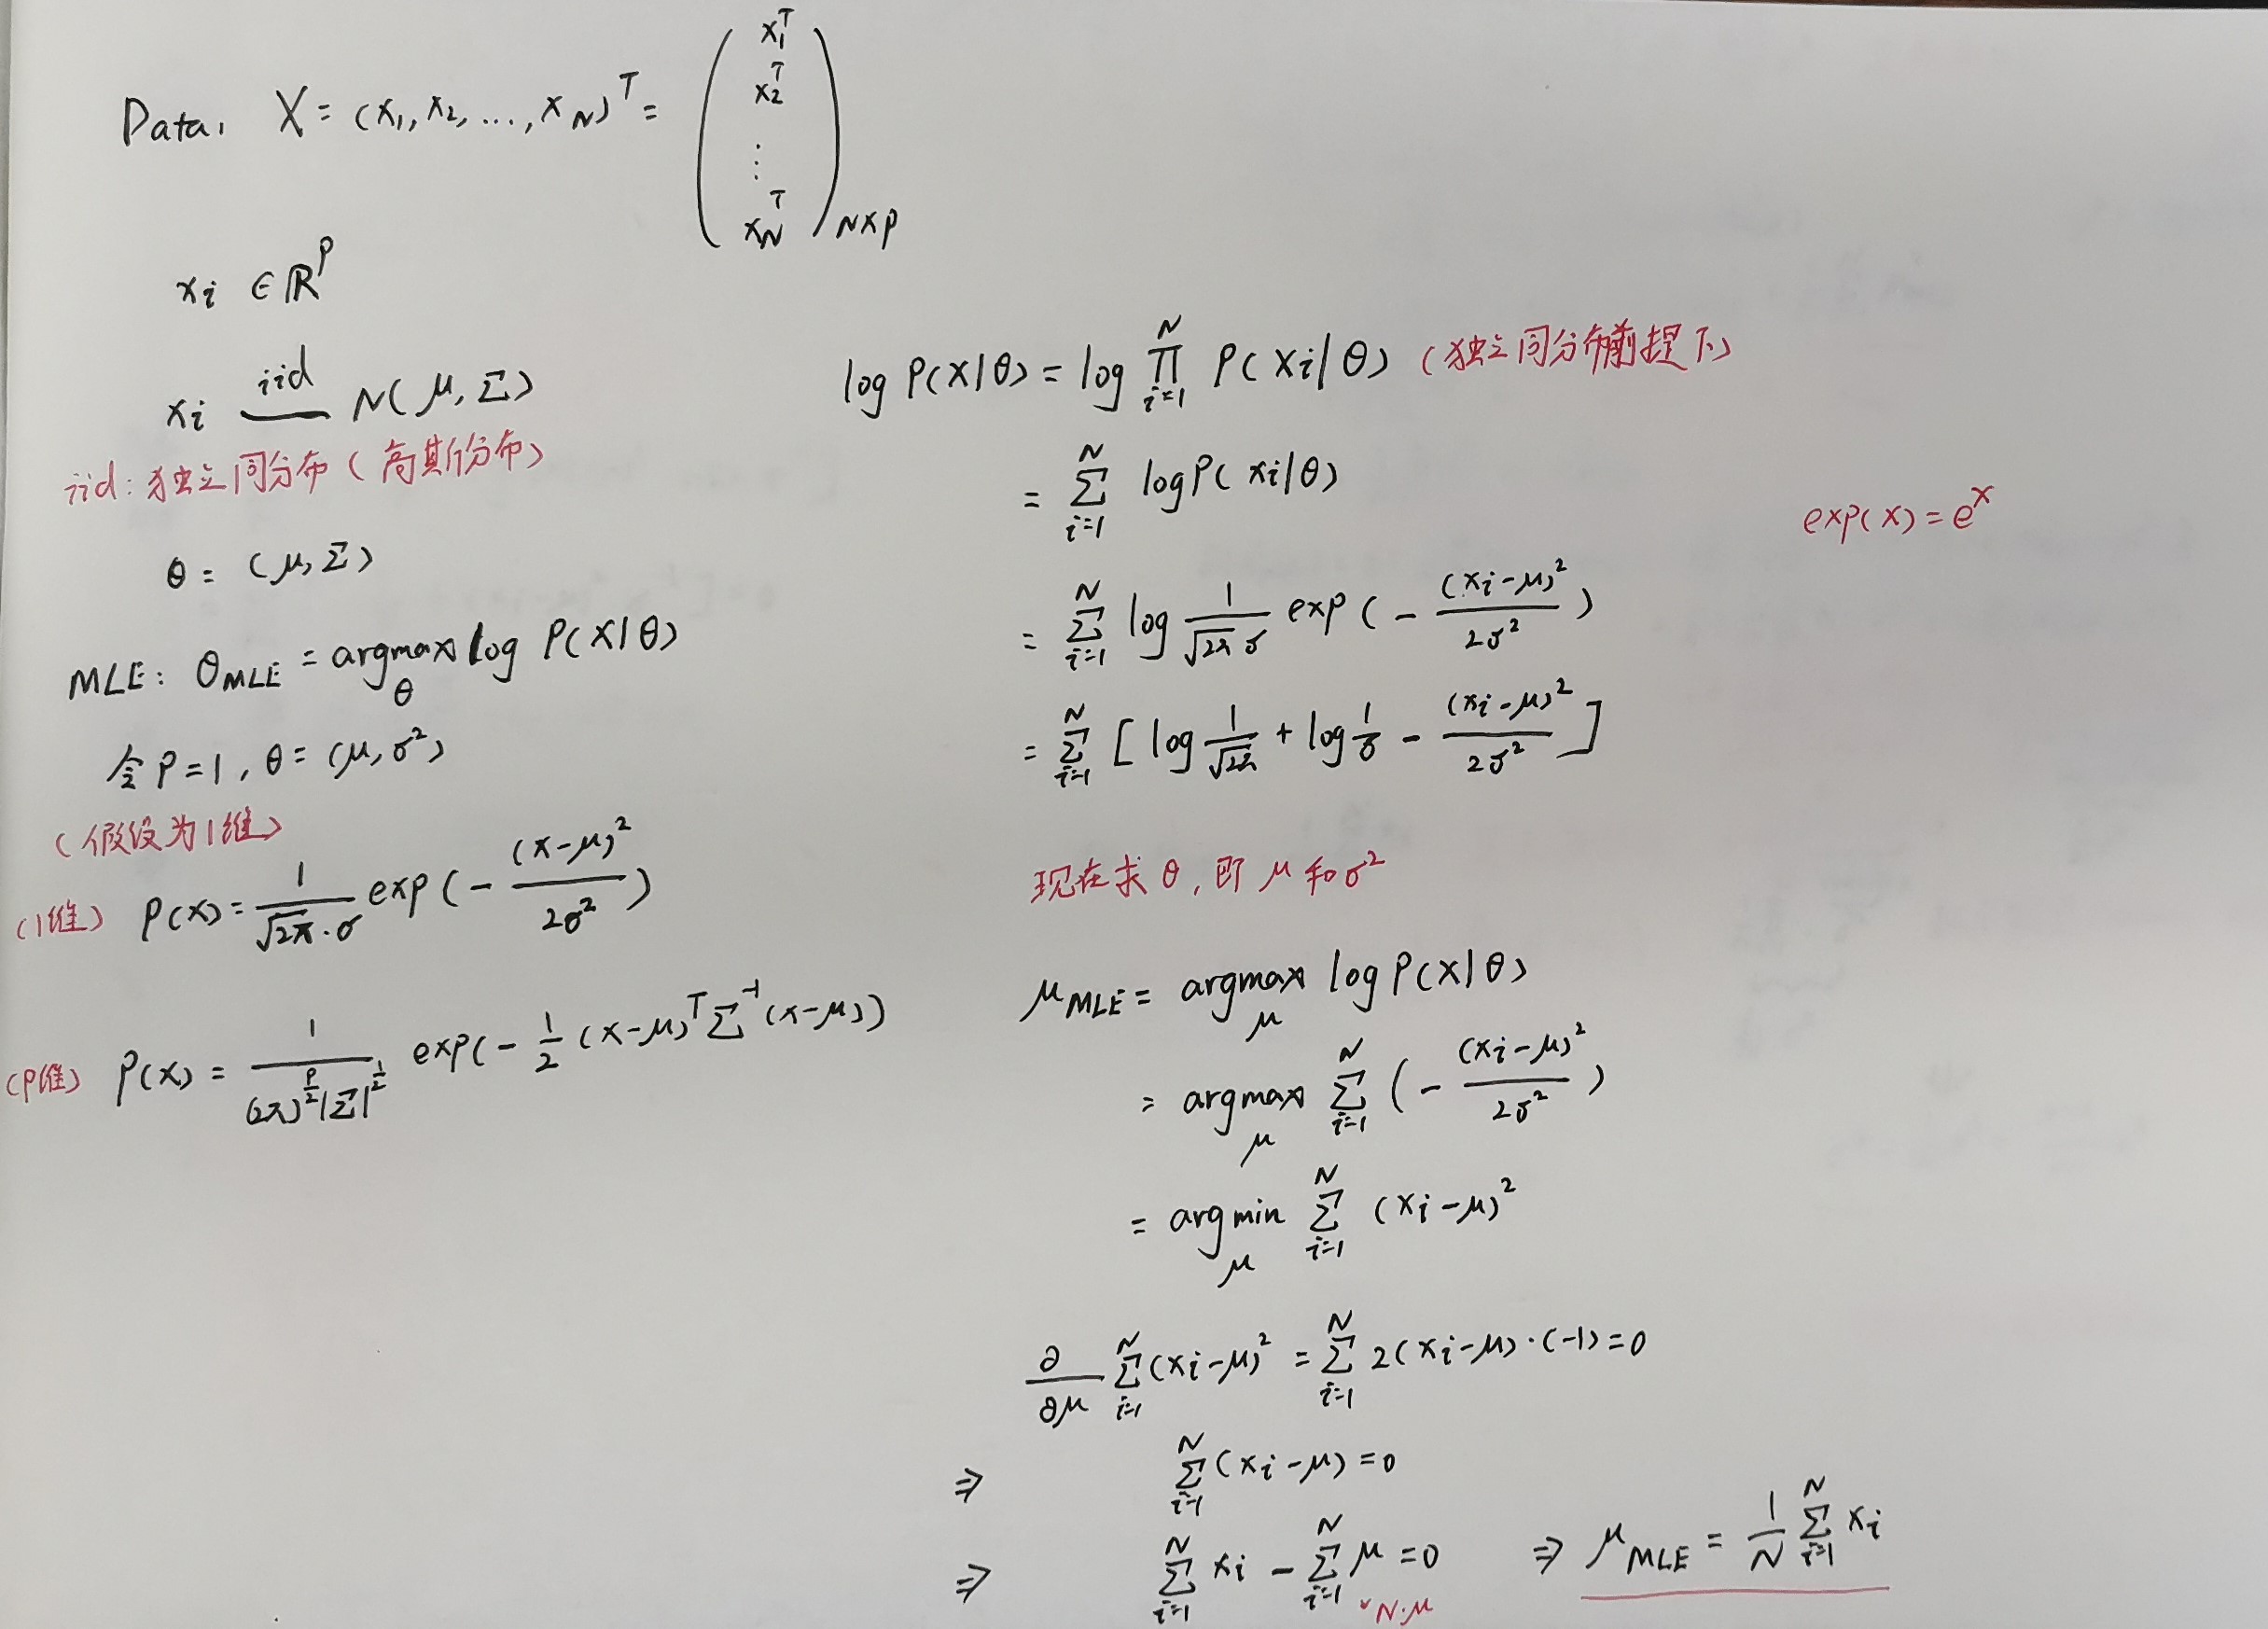 Data: X = (x₁, x₂, ..., x_N)ᵀ = ( x₁ᵀ x₂ᵀ ⋮ x_Nᵀ )_{N×p}
xᵢ ∈ ℝᵖ
xᵢ iid N(μ, Σ)
iid: 独立同分布（高斯分布）
θ = (μ, Σ)
MLE: θ_MLE = argmax_θ log P(X|θ)
令 p=1, θ = (μ, σ²)
（假设为1维）
（1维） p(x) = 1/(√2π·σ) exp(- (x-μ)²/(2σ²))
（p维） p(x) = 1/((2π)^{p/2}|Σ|^{1/2}) exp(- 1/2 (x-μ)ᵀ Σ⁻¹ (x-μ))
log P(X|θ) = log ∏_{i=1}^{N} P(xᵢ|θ) （独立同分布前提下）
= Σ_{i=1}^{N} log P(xᵢ|θ)
exp(x) = eˣ
= Σ_{i=1}^{N} log 1/(√2π σ) exp(- (xᵢ-μ)²/(2σ²))
= Σ_{i=1}^{N} [ log 1/√2π + log 1/σ - (xᵢ-μ)²/(2σ²) ]
现在求 θ, 即 μ 和 σ²
μ_MLE = argmax_μ log P(X|θ)
= argmax_μ Σ_{i=1}^{N} (- (xᵢ-μ)²/(2σ²))
= argmin_μ Σ_{i=1}^{N} (xᵢ-μ)²
∂/∂μ Σ_{i=1}^{N} (xᵢ-μ)² = Σ_{i=1}^{N} 2(xᵢ-μ)·(-1) = 0
⇒ Σ_{i=1}^{N} (xᵢ-μ) = 0
⇒ Σ_{i=1}^{N} xᵢ - Σ_{i=1}^{N} μ = 0 ⇒ μ_MLE = 1/N Σ_{i=1}^{N} xᵢ
N·μ